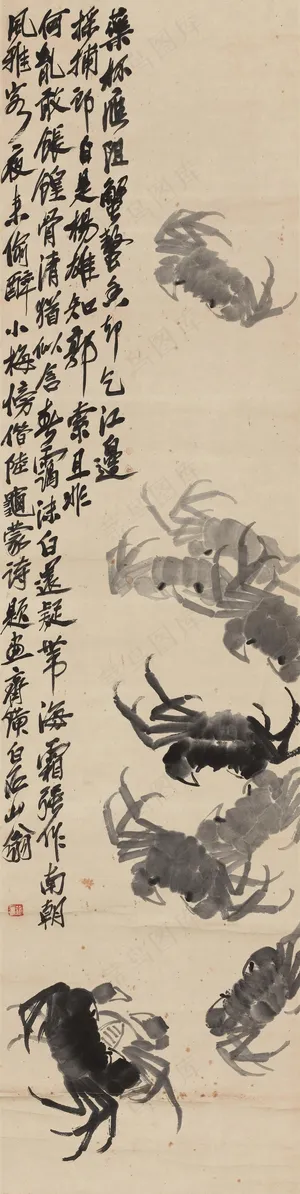 藥杯應阻蟹螯香却乞江邊
採捕郎自是楊雄知郭索且非
何胤敢餦餭骨清猶似含春靄沫白還疑帶海霜強作南朝
風雅客夜來偷醉小梅傍借陸龜蒙詩題畫齊璜白石山翁